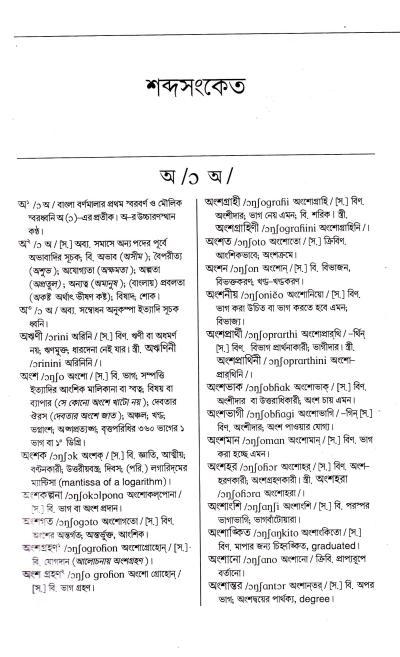 শব্দসংকেত
অ /ɔ অ/
অ¹ /ɔ অ / বাংলা বর্ণমালার প্রথম স্বরবর্ণ ও মৌলিক
স্বরধ্বনি অ (ɔ)-এর প্রতীক। অ-র উচ্চারণস্থান
কণ্ঠ।
অ² /ɔ অ / [স.] অব্য. সমাসে অন্য পদের পূর্বে
অভাবাদির সূচক; বি. অভাব (অসীম); বৈপরীত্য
(অশুভ); অযোগ্যতা (অক্ষমতা); অল্পতা
(অপ্রতুল); অন্যত্ব (অমানুষ); (বাংলায়) প্রবলতা
(অকষ্ট অর্থাৎ ভীষণ কষ্ট); বিষাদ; শোক।
অ° /ɔ অ/ অব্য. সম্বোধন অনুকম্পা ইত্যাদি সূচক
ধ্বনি।
অঋণী /ɔrini অরিনি / [স.] বিণ. ঋণী বা অধমর্ণ
নয়; ঋণমুক্ত; ধারদেনা নেই যার। স্ত্রী. অঋণিনী
/ɔrinini অরিনিনি /।
অংশ /ɔŋʃo অংশো / [স.] বি. ভাগ; সম্পত্তি
ইত্যাদির আংশিক মালিকানা বা স্বত্ব; বিষয় বা
ব্যাপার (সে কোনো অংশে খাটো নয়); দেবতার
ঔরস (দেবতার অংশে জাত); অঞ্চল; খণ্ড;
ভগ্নাংশ; অঙ্গপ্রত্যঙ্গ; বৃত্তপরিধির ৩৬০ ভাগের ১
ভাগ বা ১° ডিগ্রি।
অংশক /ɔŋʃok অংশক্ / [স.] বি. জ্ঞাতি, আত্মীয়;
বণ্টনকারী; উত্তরীয়বস্ত্র; দিবস; (পরি.) লগারিদ্‌মের
ম্যান্টিসা (mantissa of a logarithm)।
অংশকল্পনা /ɔŋʃokɔlpona অংশোকল্পোনা /
[স.] বি. ভাগ বা অংশ প্রদান।
অংশগত /ɔŋʃogɔto অংশোগতো / [স.] বিণ.
অংশের অন্তর্গত; অন্তর্ভুক্ত, আংশিক।
অংশগ্রহণ¹ /ɔŋʃogrofion অংশোগ্রোহোন্ / [স.]-
বি. যোগদান (আলোচনায় অংশগ্রহণ)।
অংশ গ্রহণ² /ɔŋʃo grofion অংশো গ্রোহোন্ /
[স.] বি. ভাগ গ্রহণ।
অংশগ্রাহী /ɔŋʃografii অংশোগ্রাহি / [স.] বিণ.
অংশীদার; ভাগ নেয় এমন; বি. শরিক। স্ত্রী.
অংশগ্রাহিণী /ɔŋʃografiini অংশোগ্রাহিনি /।
অংশত /ɔŋʃoto অংশোতো / [স.] ক্রিবিণ.
আংশিকভাবে; অংশক্রমে।
অংশন /ɔŋʃon অংশোন্ / [স.] বি. বিভাজন,
বিভক্তকরণ; খণ্ড-খণ্ডকরণ।
অংশনীয় /ɔŋʃoniĕo অংশোনিয়ো / [স.] বিণ.
ভাগ করা উচিত বা ভাগ করতে হবে এমন;
বিভাজ্য।
অংশপ্রার্থী /ɔŋʃoprarthi অংশোপ্রার্‌থি / -র্থিন্
[স.] বিণ. বিভাগ প্রার্থনাকারী; ভাগীদার। স্ত্রী.
অংশপ্রার্থিনী /ɔŋʃoprarthini অংশো-
প্রার্‌থিনি /।
অংশভাক /ɔŋʃobfiak অংশোভাক্ / [স.] বিণ.
অংশীদার বা উত্তরাধিকারী; অংশ চায় এমন।
অংশভাগী /ɔŋʃobfiagi অংশোভাগি / -গিন্ [স.]
বিণ. অংশীদার; অংশ পাওয়ার যোগ্য।
অংশমান /ɔŋʃoman অংশোমান্ / [স.] বিণ. ভাগ
করা হচ্ছে এমন।
অংশহর /ɔŋʃofiɔr অংশোহর্ / [স.] বিণ. অংশ-
হরণকারী; অংশগ্রহণকারী। স্ত্রী. অংশহরা
/ɔŋʃofiɔra অংশোহরা /।
অংশাংশি /ɔŋʃaŋʃi অংশাংশি / [স.] বি. পরস্পর
ভাগাভাগি; ভাগবাঁটোয়ারা।
অংশাঙ্কিত /ɔŋʃaŋkito অংশাংকিতো / [স.]
বিণ. মাপার জন্য চিহ্নঙ্কিত, graduated।
অংশানো /ɔŋʃano অংশানো / ক্রিবি. প্রাপ্যরূপে
বর্তানো।
অংশান্তর /ɔŋʃantɔr অংশান্‌তর্ / [স.] বি. অপর
ভাগ; অংশদ্বয়ের পার্থক্য, degree।